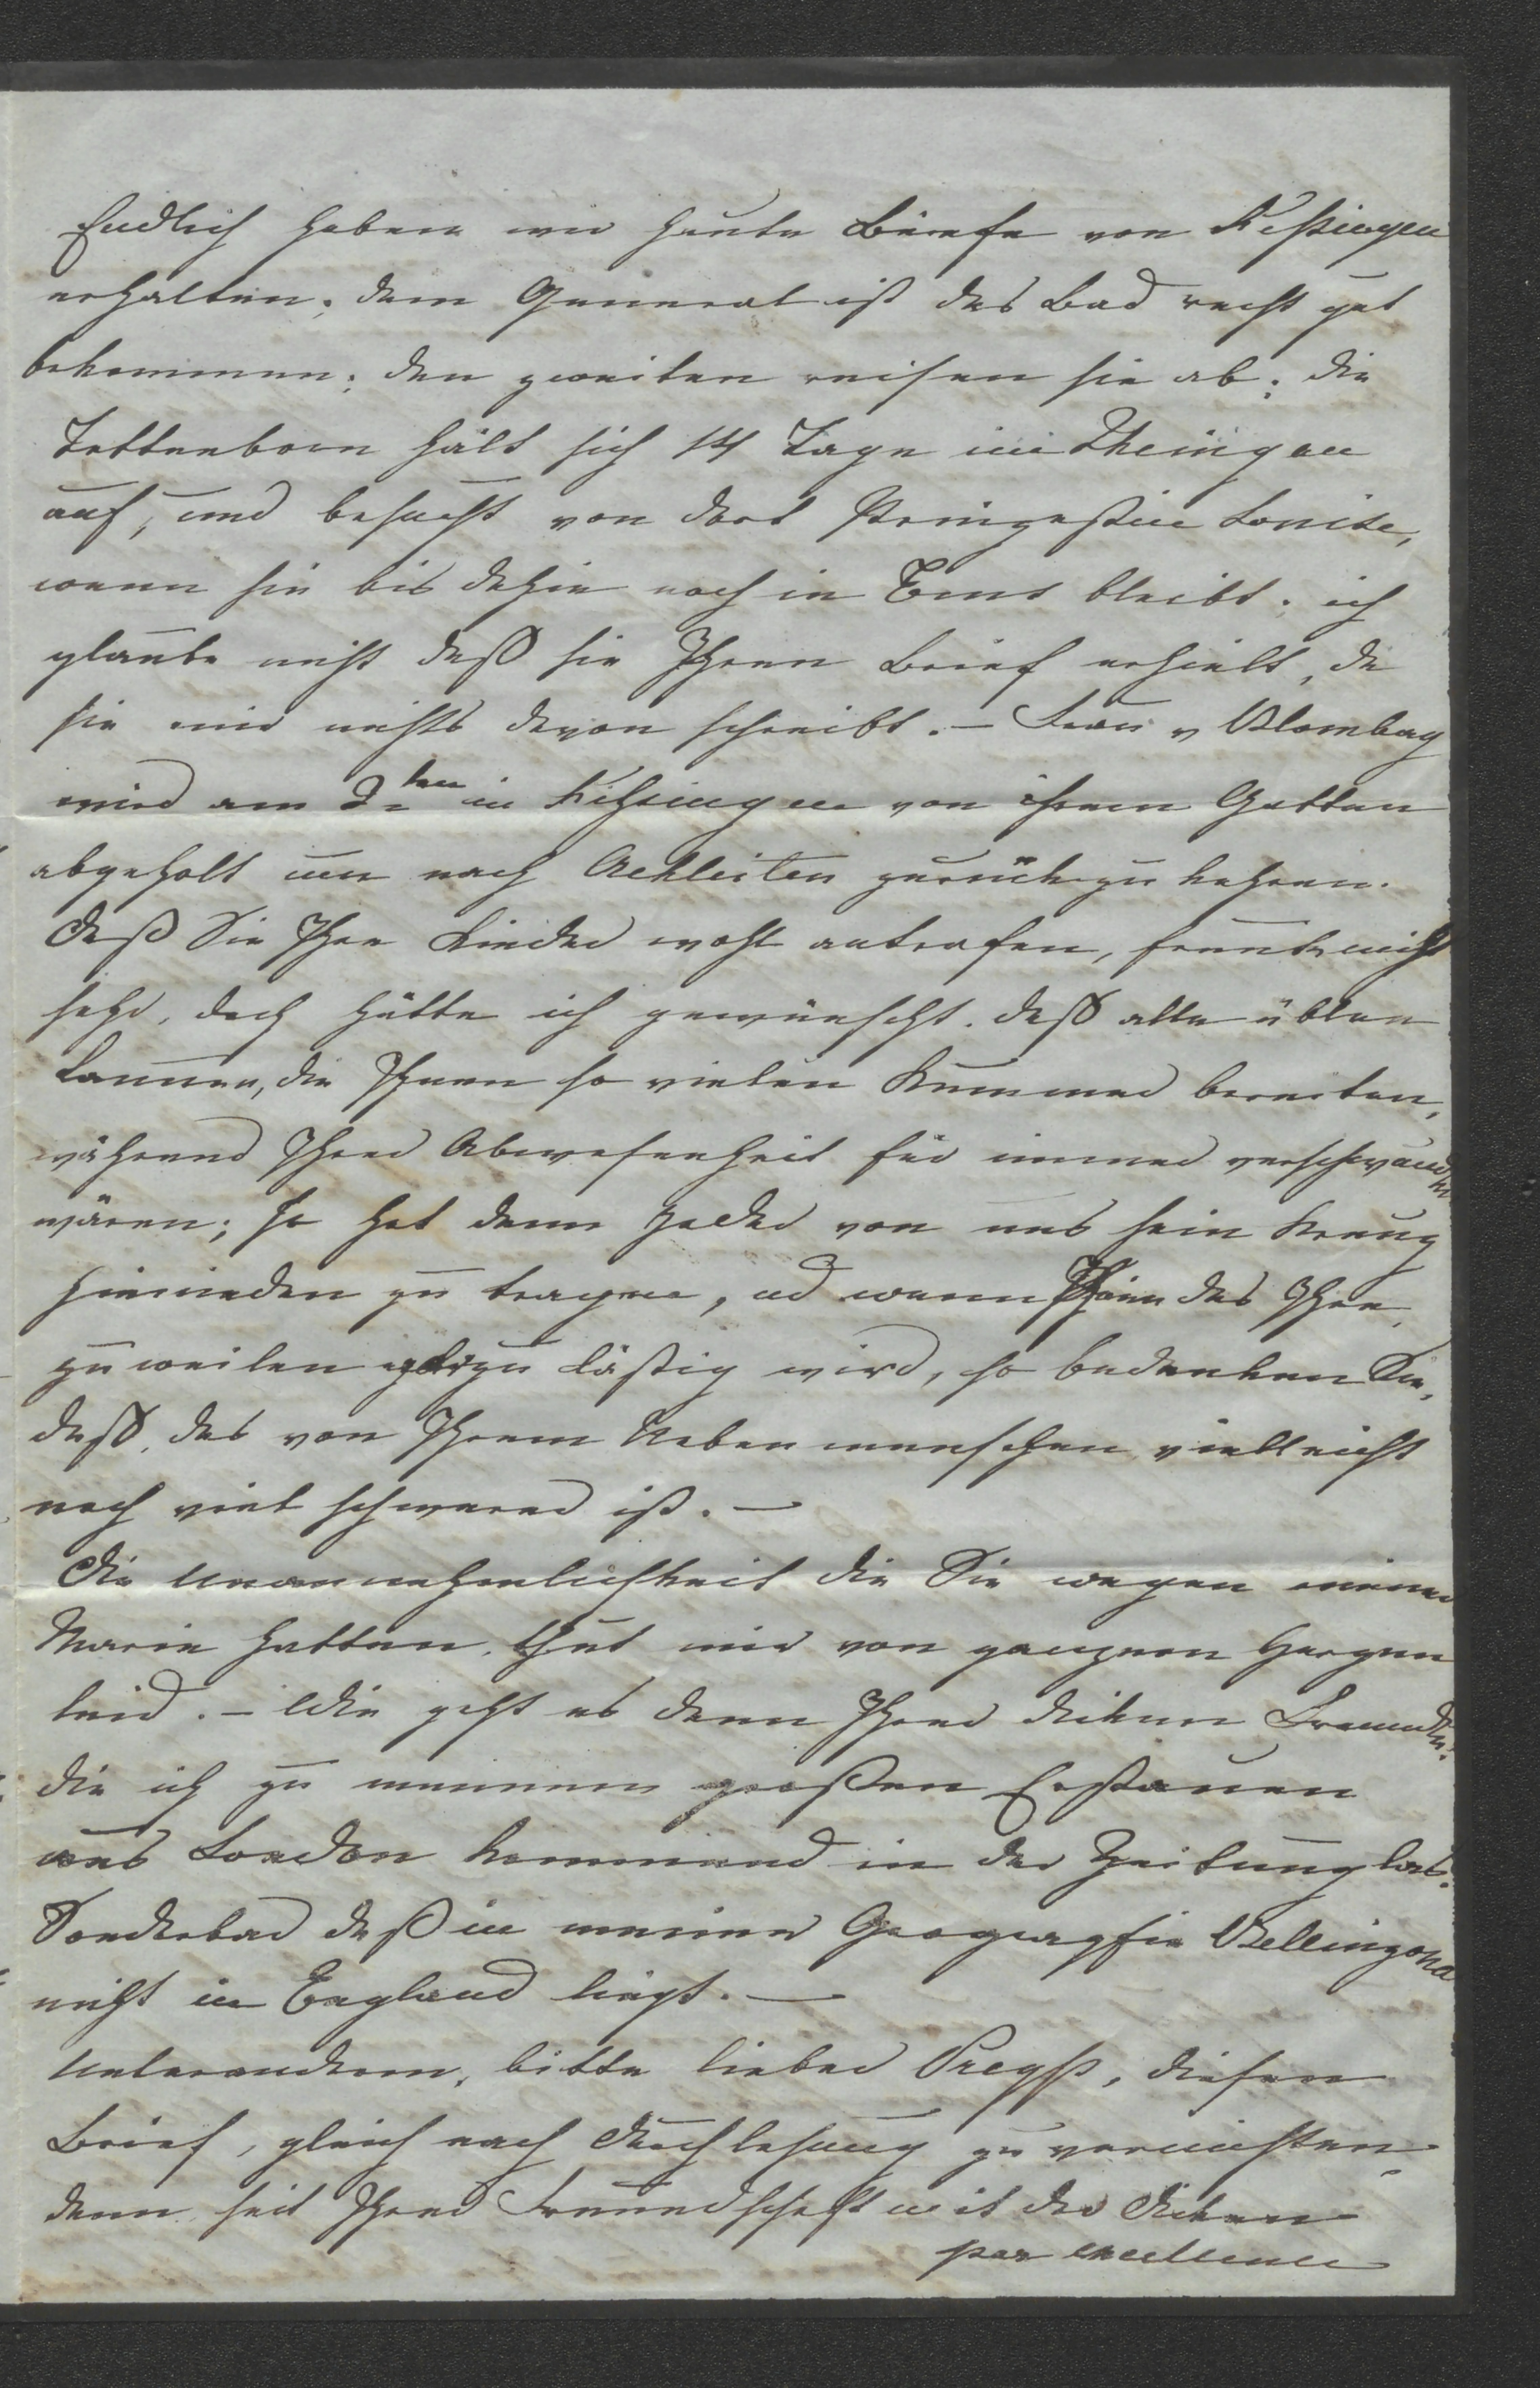 Endlich haben wir heute Briefe von Kißingen
erhalten; dem General ist das Bad recht gut
bekommen; den zweiten reisen sie ab; die
Tettenborn hält sich 14 Tage im Rheingau
auf, und besucht von dort Prinzeßin Louise,
wenn sie bis dahin noch in Ems bleibt; ich
glaube nicht daß sie Ihren Brief erhielt, da
sie mir nichts davon schreibt. – Frau v Blomberg
wird am 2ten in Kißingen von ihrem Gatten
abgeholt um nach Achleiten zurück zu kehren.
Daß Sie Ihre Kinder wohl antrafen, freut mich
sehr, doch hätte ich gewünscht, daß alle üblen
Launen, die Ihnen so vielen Kummer bereiten,
während Ihrer Abwesenheit für immer verschwunden
wären; so hat denn Jeder von uns sein Kreuz
hienieden zu tragen, und wenn das Ihre,
zuweilen gar zu lästig wird, so bedenken Sie,
daß, das von Ihrem Nebenmenschen vielleicht
noch viel schwerer ist. –
Die Unannehmlichkeit die Sie wegen meiner
Marie hatten, thut mir von ganzem Herzen
leid. – Wie geht es denn Ihrer dicken Freundin,
die ich zu meinem großen Erstaunen
aus London kommend in der Zeitung las.
Sonderbar daß in meiner Geographie Bellinzona
nicht in England liegt. –
Unteranderm, bitte lieber, diesen
Brief, gleich nach Durchlesung zu vernichten,
denn seit Ihrer Freundschaft mit der Dicken
par excellence